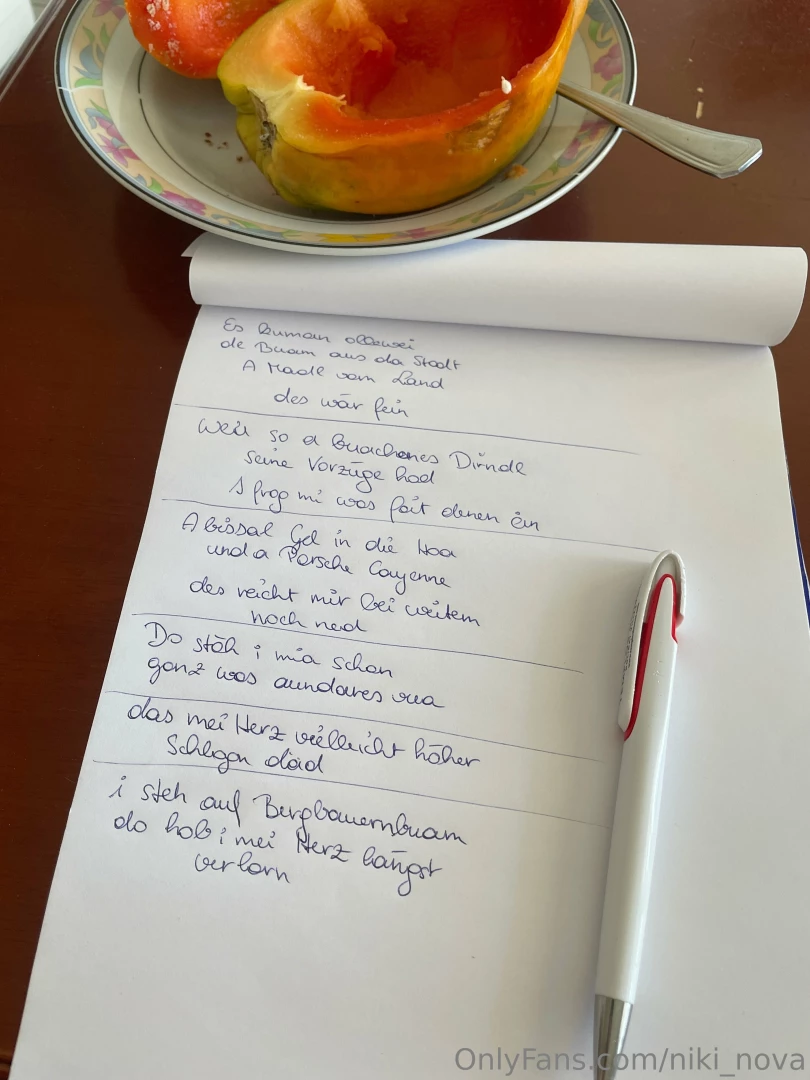 Es kuman ollawei
de Buam aus da Stodt
A Madl vom Land
des wär fein
Weil so a buachenes Dirndl
seine Vorzüge hod
I frog mi was foit denen ein
A bissal Gel in die Hoa
und a Porsche Cayenne
des reicht mir bei weitem
noch ned
Do stöh i mia schon
gonz wos aundares vua
das mei Herz vielleicht höher
Schlogn däd
i steh auf Bergbauernbuam
do hob i mei Herz längst
verlorn
OnlyFans.com/niki_nova